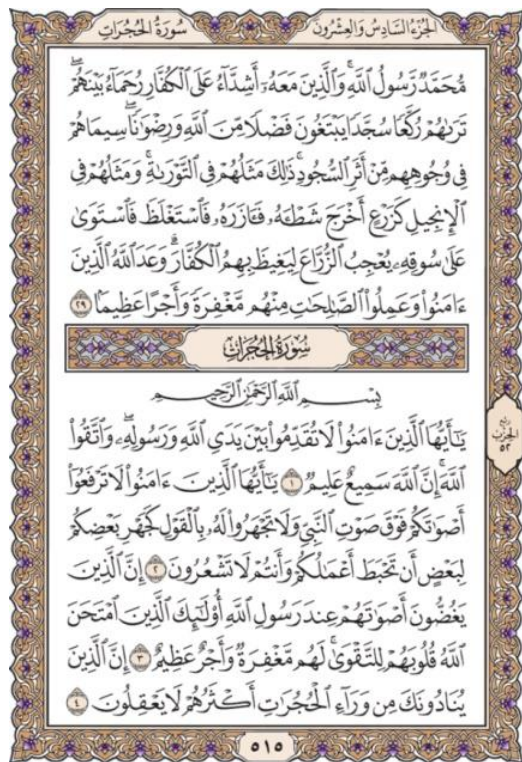 سُورَةُ الحُجُرَاتِ
الجُزْءُ السَّادِسُ وَالعِشْرُونَ
مُّحَمَّدٌ رَّسُولُ ٱللَّهِۚ وَٱلَّذِينَ مَعَهُۥٓ أَشِدَّآءُ عَلَى ٱلْكُفَّارِ رُحَمَآءُ بَيْنَهُمْۖ
تَرَىٰهُمْ رُكَّعًا سُجَّدًا يَبْتَغُونَ فَضْلًا مِّنَ ٱللَّهِ وَرِضْوَٰنًاۖ سِيمَاهُمْ
فِى وُجُوهِهِم مِّنْ أَثَرِ ٱلسُّجُودِۚ ذَٰلِكَ مَثَلُهُمْ فِى ٱلتَّوْرَىٰةِۚ وَمَثَلُهُمْ فِى
ٱلْإِنجِيلِ كَزَرْعٍ أَخْرَجَ شَطْـَٔهُۥ فَـَٔازَرَهُۥ فَٱسْتَغْلَظَ فَٱسْتَوَىٰ
عَلَىٰ سُوقِهِۦ يُعْجِبُ ٱلزُّرَّاعَ لِيَغِيظَ بِهِمُ ٱلْكُفَّارَۗ وَعَدَ ٱللَّهُ ٱلَّذِينَ
ءَامَنُوا۟ وَعَمِلُوا۟ ٱلصَّٰلِحَٰتِ مِنْهُم مَّغْفِرَةً وَأَجْرًا عَظِيمًۢا ٢٩
سُورَةُ الحُجُرَاتِ
بِسْمِ ٱللَّهِ ٱلرَّحْمَٰنِ ٱلرَّحِيمِ
يَٰٓأَيُّهَا ٱلَّذِينَ ءَامَنُوا۟ لَا تُقَدِّمُوا۟ بَيْنَ يَدَىِ ٱللَّهِ وَرَسُولِهِۦۖ وَٱتَّقُوا۟
ٱللَّهَۚ إِنَّ ٱللَّهَ سَمِيعٌ عَلِيمٌ ١ يَٰٓأَيُّهَا ٱلَّذِينَ ءَامَنُوا۟ لَا تَرْفَعُوٓا۟
أَصْوَٰتَكُمْ فَوْقَ صَوْتِ ٱلنَّبِىِّ وَلَا تَجْهَرُوا۟ لَهُۥ بِٱلْقَوْلِ كَجَهْرِ بَعْضِكُمْ
لِبَعْضٍ أَن تَحْبَطَ أَعْمَٰلُكُمْ وَأَنتُمْ لَا تَشْعُرُونَ ٢ إِنَّ ٱلَّذِينَ
يَغُضُّونَ أَصْوَٰتَهُمْ عِندَ رَسُولِ ٱللَّهِ أُو۟لَٰٓئِكَ ٱلَّذِينَ ٱمْتَحَنَ
ٱللَّهُ قُلُوبَهُمْ لِلتَّقْوَىٰۚ لَهُم مَّغْفِرَةٌ وَأَجْرٌ عَظِيمٌ ٣ إِنَّ ٱلَّذِينَ
يُنَادُونَكَ مِن وَرَآءِ ٱلْحُجُرَٰتِ أَكْثَرُهُمْ لَا يَعْقِلُونَ ٤
ربع
الحزب
٥٢
٥١٥